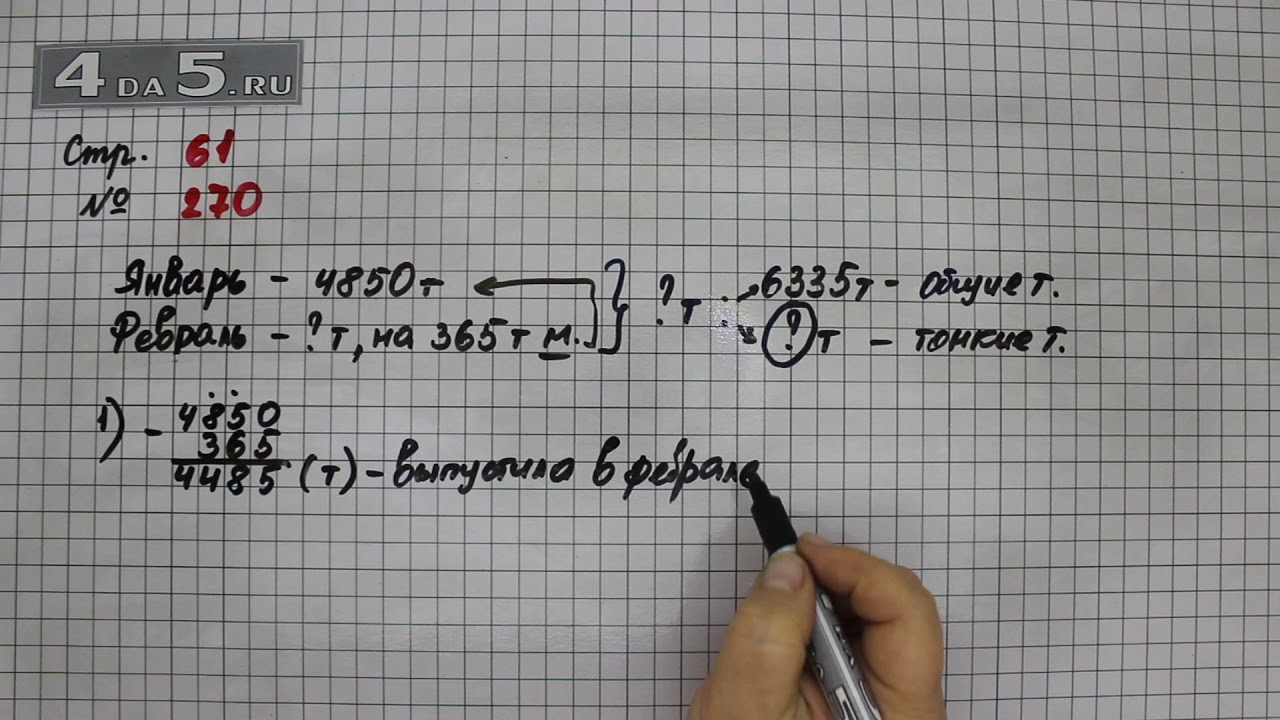 4DA5.RU
Стр. 61
№ 270
Январь - 4850т
Февраль - ? т, на 365т м.
? т
6335т - общие т.
? т - тонкие т.
1) - 4850
365
4485 (т) - выпустила в феврале